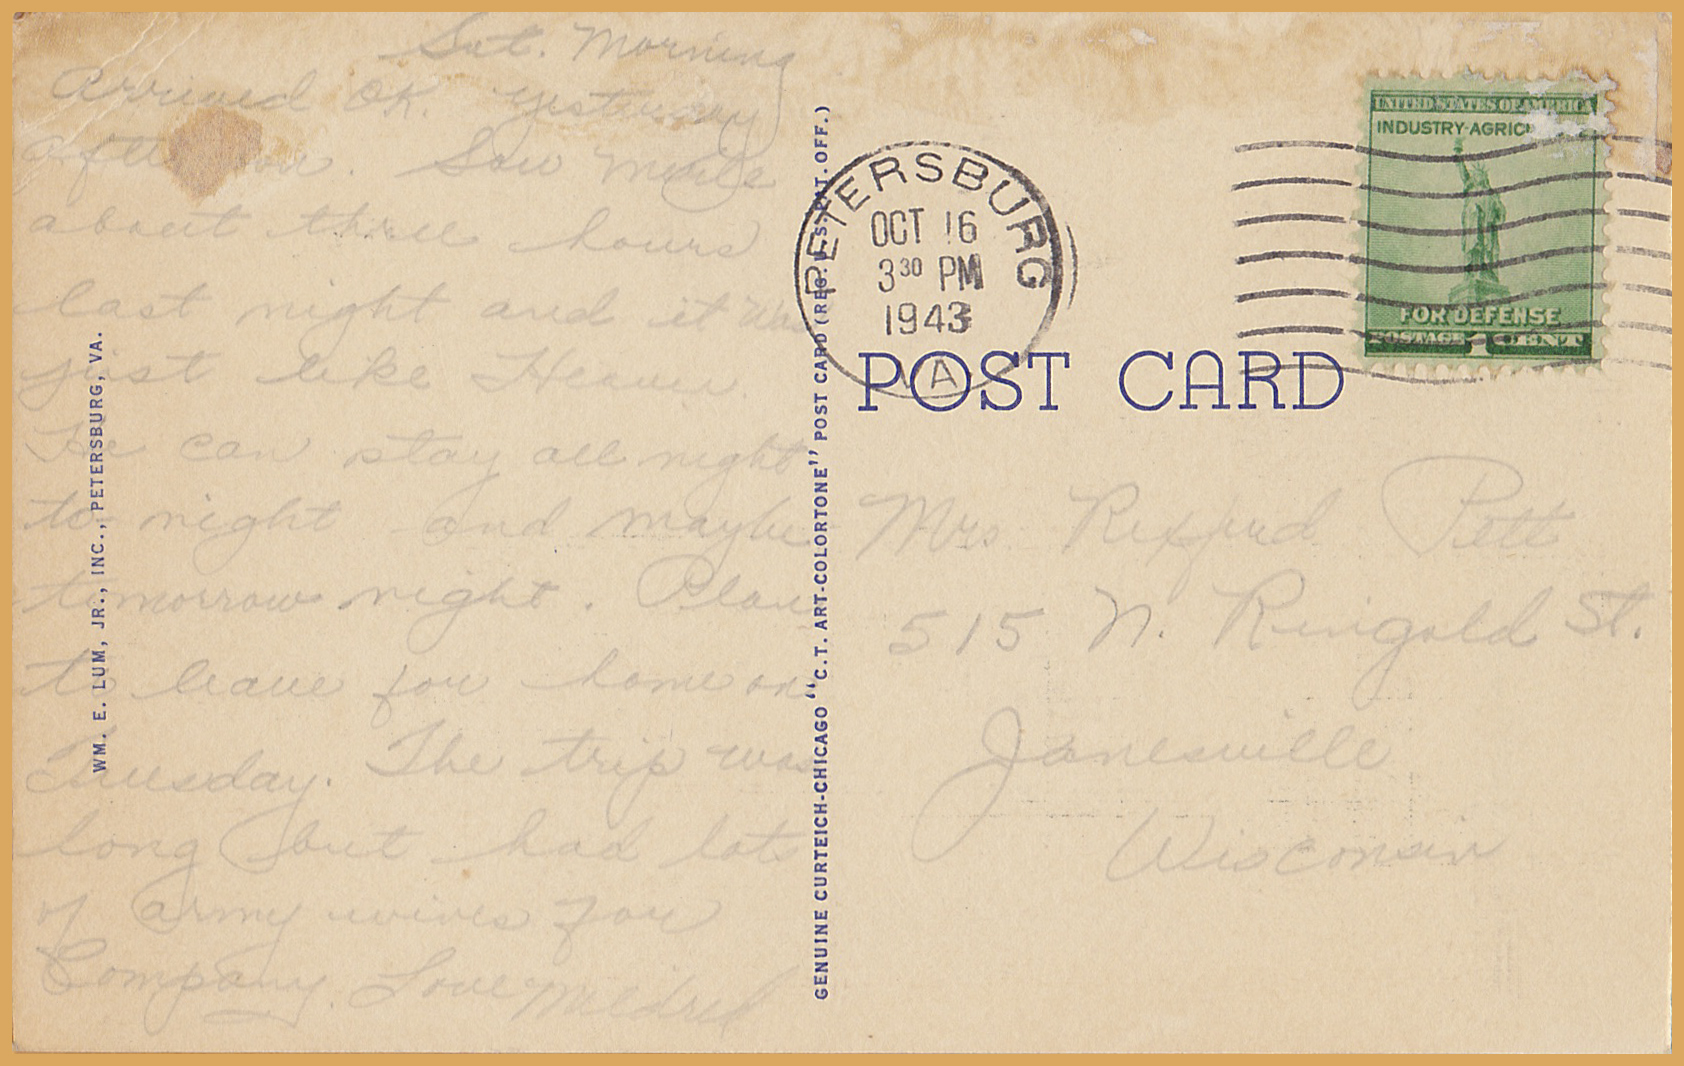 Sat. Morning
Arrived OK. yesterday
afternoon. Saw
about three hours
last night and it was
just like Heaven.
He can stay all night
to night and maybe
tomorrow night. Plan
to leave for home on
Tuesday. The trip was
long but had lots
of army wives for
Company. Love Mildred
WM. E. LUM, JR., INC., PETERSBURG, VA.
GENUINE CURTEICH-CHICAGO "C.T. ART-COLORTONE" POST CARD (REG. U.S. PAT. OFF.)
PETERSBURG
OCT 16
3 30 PM
1943
A
UNITED STATES OF AMERICA
INDUSTRY-AGRIC
FOR DEFENSE
POSTAGE 1 CENT
POST CARD
Mrs Rexford Pett
515 N. Ringold St.
Janesville
Wisconsin